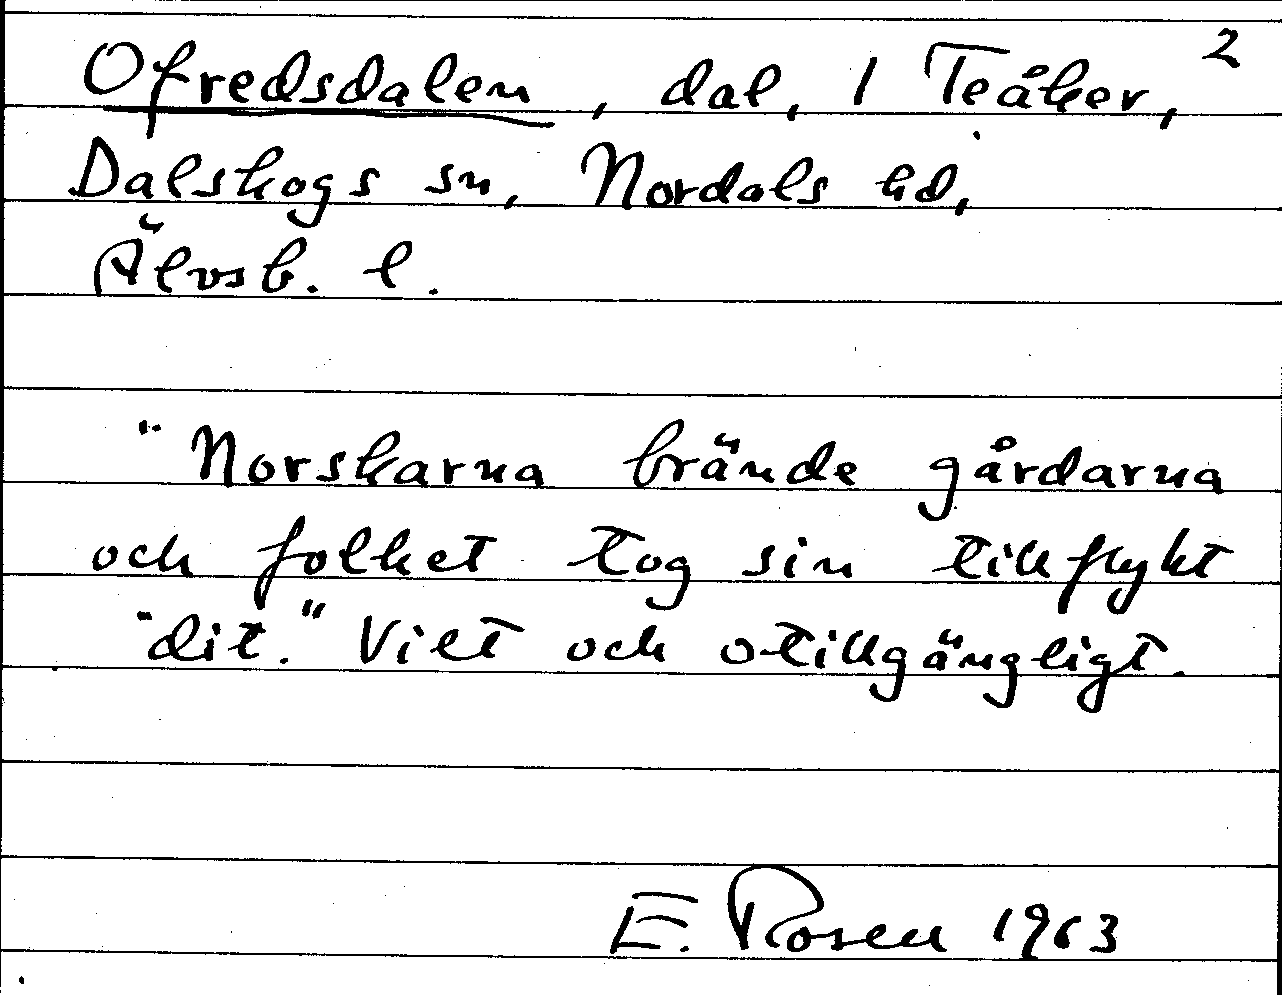 Ofredsdalen, dal, 1 Teåker, 2
Dalskogs sn, Nordals hd,
Älvsb. l.
"Norskarna brände gårdarna
och folket tog sin tillflykt
"dit." Vilt och otillgängligt.
E. Rosen 1963